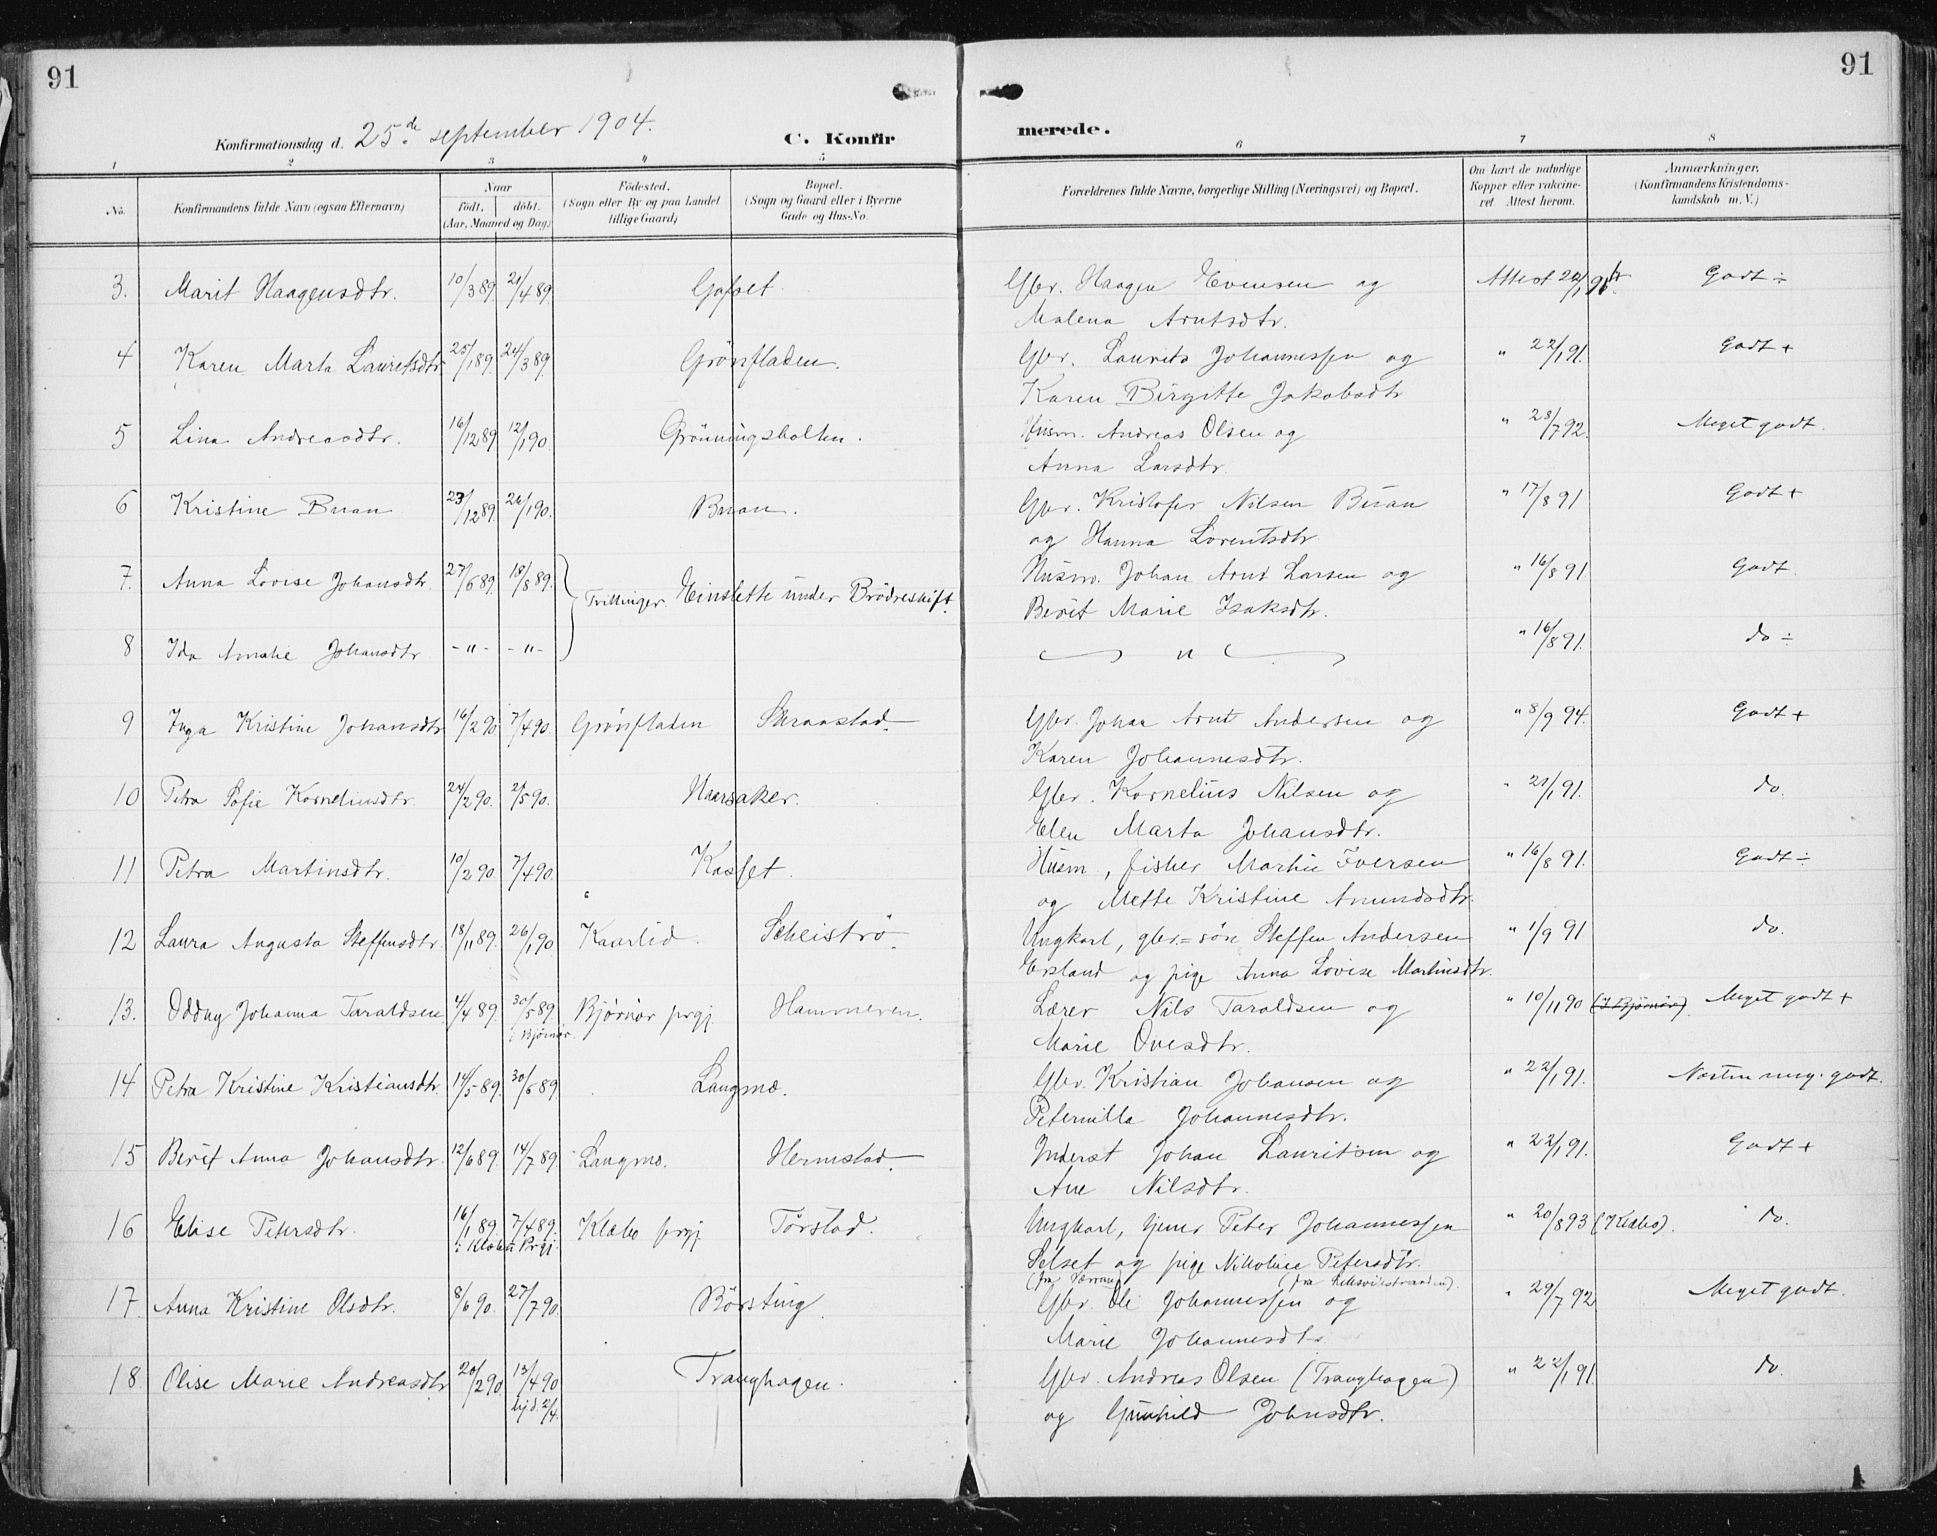 91
91
Konfirmationsdag d. 25.de september 1904.
C. Konfir
merede.
1 2 3 4 5 6 7 8
No.
Konfirmandens fulde Navn (ogsaa Efternavn)
Naar
født.
døbt.
(Aar, Maaned og Dag)
Fødested.
(Sogn eller By og paa Landet
tillige Gaard)
Bopæl.
(Sogn og Gaard eller i Byerne
Gade og Hus-No.
Forældrenes fulde Navne, borgerlige Stilling (Næringsvei) og Bopæl.
Om havt de naturlige
Kopper eller vakcine-
ret. Attest herom.
Anmærkninger.
(Konfirmandens Kristendoms-
kundskab m. V.)
3. Marit Haagensdtr. 10/3 89 21/4 89 Gafset Gbr. Haagen Evensen og Attest Godt ÷
Malena Arntsdtr.
4 Karen Marta Lauritsdtr 25/1 89. 24/3 89. Grönfladen. Gbr. Laurits Johannessen og " 22/1 91. Godt +
Karen Birgitte Jakobsdtr
5 Lina Andreasdtr. 16/12 89 12/1 90. Grönningsholten. Husm. Andreas Olsen og " 28/7 92. Meget godt.
Anna Larsdtr.
6 Kristine Buan 23/12 89. 26/1 90. Buan. Gbr. Kristofer Nilsen Buan " 17/8 91 Godt +
og Hanna Lorentsdtr.
7. Anna Lovise Johansdtr. 27/6 89. 18/8 89. Tvillinger. Einslette under Brödreskift. Husm. Johan Arnt Larsen og " 16/8 91. Godt
Berit Marie Isaksdtr.
8 Ida Amalie Johansdtr - " - - " - " " 16/8 91. do ÷
9 Inga Kristine Johansdtr 16/2 90. 7/4 90. Grönfladen Skraastad. Gbr. Johan Arnt Andersen og " 8/9 94. Godt +
Karen Johannesdtr.
10 Petra Sofie Kornelinsdtr. 24/2 90. 2/5 90. Haarsaker. Gbr. Kornelius Nilsen og " 21/1 91. do.
Elen Marta Johansdtr.
11 Petra Martinsdtr. 10/2 90 7/4 90. Kasset. Husm., fisker Martin Iversen " 16/8 91. Godt ÷
og Mette Kristine Amundsdtr.
12 Laura Augusta Steffensdtr. 18/11 89. 26/1 90 Kaarlid. Scheiströ. Ungkarl, gbr.=sön Steffen Andersen " 1/9 91 do.
Ersland og pige Anna Lovise Martinsdtr.
13. Oddny Johanna Taraldsen 4/4 89. 30/5 89. Bjørnør prgj. Hammeren. Lærer Nils Taraldsen og " 10/11 90 (I Bjørnør). Meget godt +
i Bjørnør.
Marie Ovesdtr.
14 Petra Kristine Kristiansdtr. 14/5 89. 30/6 89. Langmo. Gbr. Kristian Johansen og " 22/1 91. Næsten meg. godt.
Peternilla Johannesdtr.
15 Berit Anna Johansdtr. 12/6 89. 14/7 89. Langmo. Hermstad. Inderst Johan Lauritsen og " 22/1 91. Godt +
Ane Nilsdtr.
16 Elise Petersdtr. 16/1 89. 7/4 89. Klæbo prgj Tørstad. Ungkarl, tjener Peter Johannessen " 20/8 93 (Klæbo). do.
i Klæbu Prgj.
Selset og pige Nikoline Petersdtr.
(fra Leksvikstranden).
17. Anna Kristine Olsdtr. 8/6 90. 27/7 90. Börsting. Gbr. Ole Johannessen og " 29/7 92 Meget godt.
Marie Johannesdtr.
18. Olise Marie Andreasdtr 20/2 90. 13/4 90 Tranghagen. Gbr. Andreas Olsen (Tranghagen) " 22/1 91. do.
hjd. 2/4.
og Gunhild Johnsdtr.